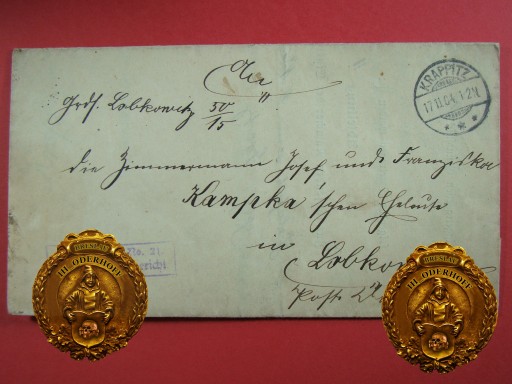 An
Grdf. Lobkowitz 50/15
KRAPPITZ
17.11.04. 1-2N.
die Zimmermann Josef und Franziska
Kampka'schen Eheleute
in
Lobkowitz
Post
No. 21
BRESLAU
III ODERHOFF
BRESLAU
III ODERHOFF